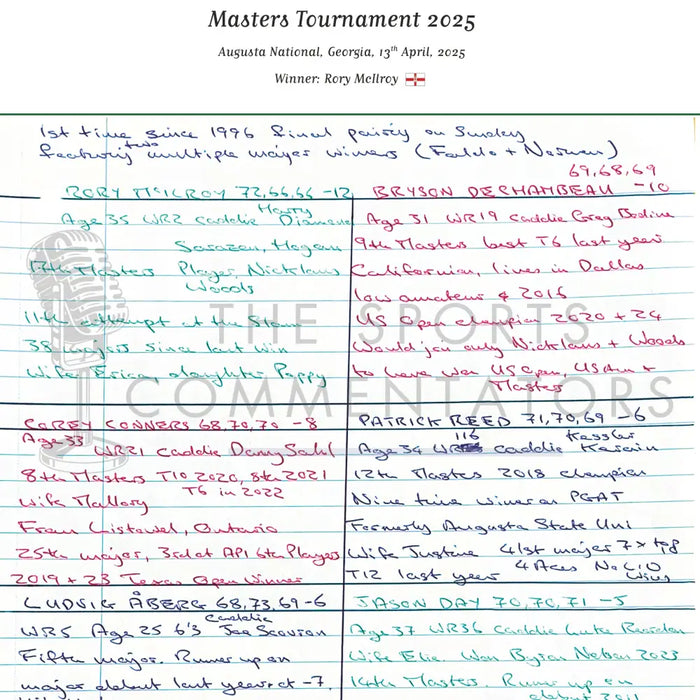 Masters Tournament 2025
Augusta National, Georgia, 13th April, 2025
Winner: Rory McIlroy
1st time since 1996 final pairing on Sunday
featuring two multiple major winners (Faldo + Norman)
RORY McILROY 72,66,66 -12
Age 35 WR2 Caddie Harry Diamond
Sarazen, Hogan
17th Masters Player, Nicklaus
Woods
11th attempt at the Slam
38 majors since last win
Wife Erica, daughter Poppy
69,68,69
BRYSON DECHAMBEAU -10
Age 31 WR19 Caddie Greg Bodine
9th Masters best T6 last year
Californian, lives in Dallas
low amateur 2016
US Open champion 2020 + 24
Would join only Nicklaus + Woods
to have won US Open, US Am +
Masters
COREY CONNERS 68,70,70 -8
Age 33 WR21 Caddie Danny Sahl
8th Masters T10 2020, 8th 2021
T6 in 2022
Wife Mallory
From Listowel, Ontario
25th major, 3rd at API 6th Players
2019 + 23 Texas Open Winner
PATRICK REED 71,70,69 -6
Age 34 WR 116 Caddie Kessler
Karain
12th Masters 2018 champion
Nine time winner on PGAT
Formerly Augusta State Uni
Wife Justine 41st major 7 x top
T12 last year 4 Aces No LIV
Wins
LUDVIG ÅBERG 68,73,69 -6
WR5 Age 25 6'3 Caddie Joe Scovron
Fifth major. Runner up on
major debut last year at -7
JASON DAY 70,70,71 -5
Age 37 WR36 Caddie Luke Reardon
Wife Ellie. Won Byron Nelson 2023
14th Masters. Runner up on
debut 2011
THE SPORTS
COMMENTATORS